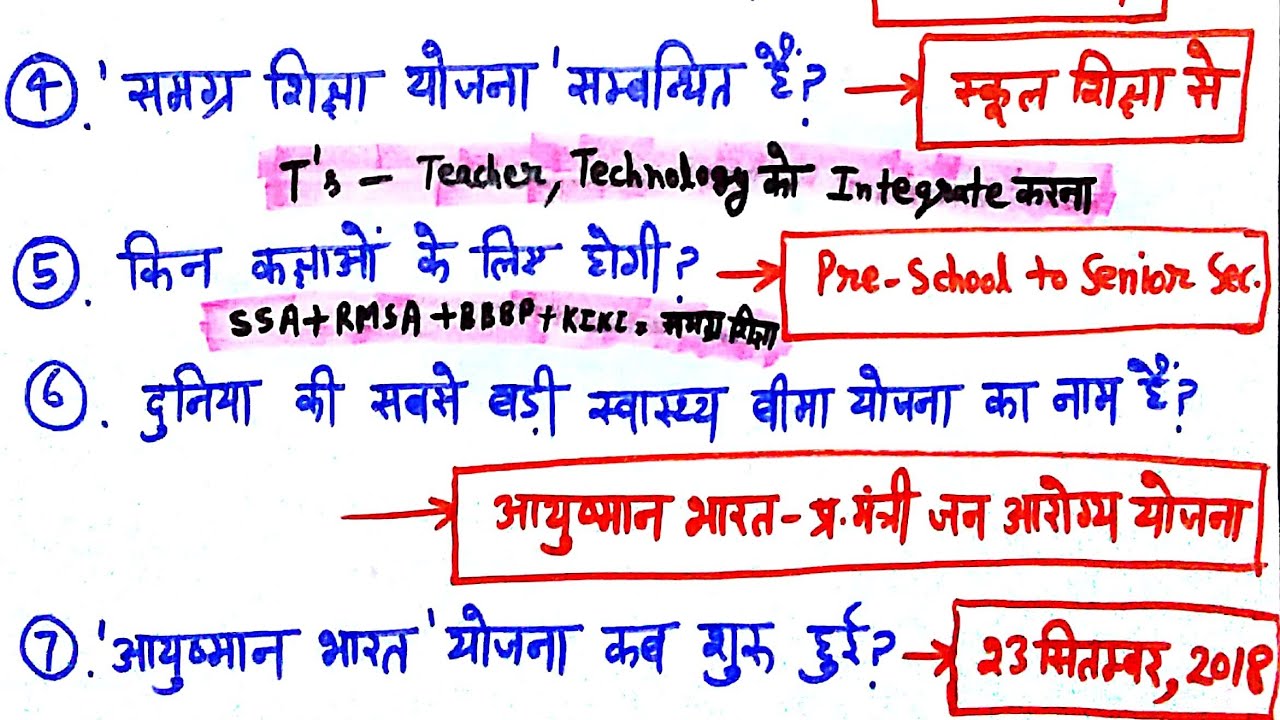 ④. 'समग्र शिक्षा योजना' सम्बन्धित है? → स्कूल शिक्षा से
T's – Teacher, Technology को Integrate करना
⑤. किन कक्षाओं के लिए होगी? → Pre-School to Senior Sec.
SSA+RMSA+BBBP+KIKI = समग्र शिक्षा
⑥. दुनिया की सबसे बड़ी स्वास्थ्य बीमा योजना का नाम है?
→ आयुष्मान भारत - प्र. मंत्री जन आरोग्य योजना
⑦. 'आयुष्मान भारत' योजना कब शुरू हुई? → 23 सितम्बर, 2018